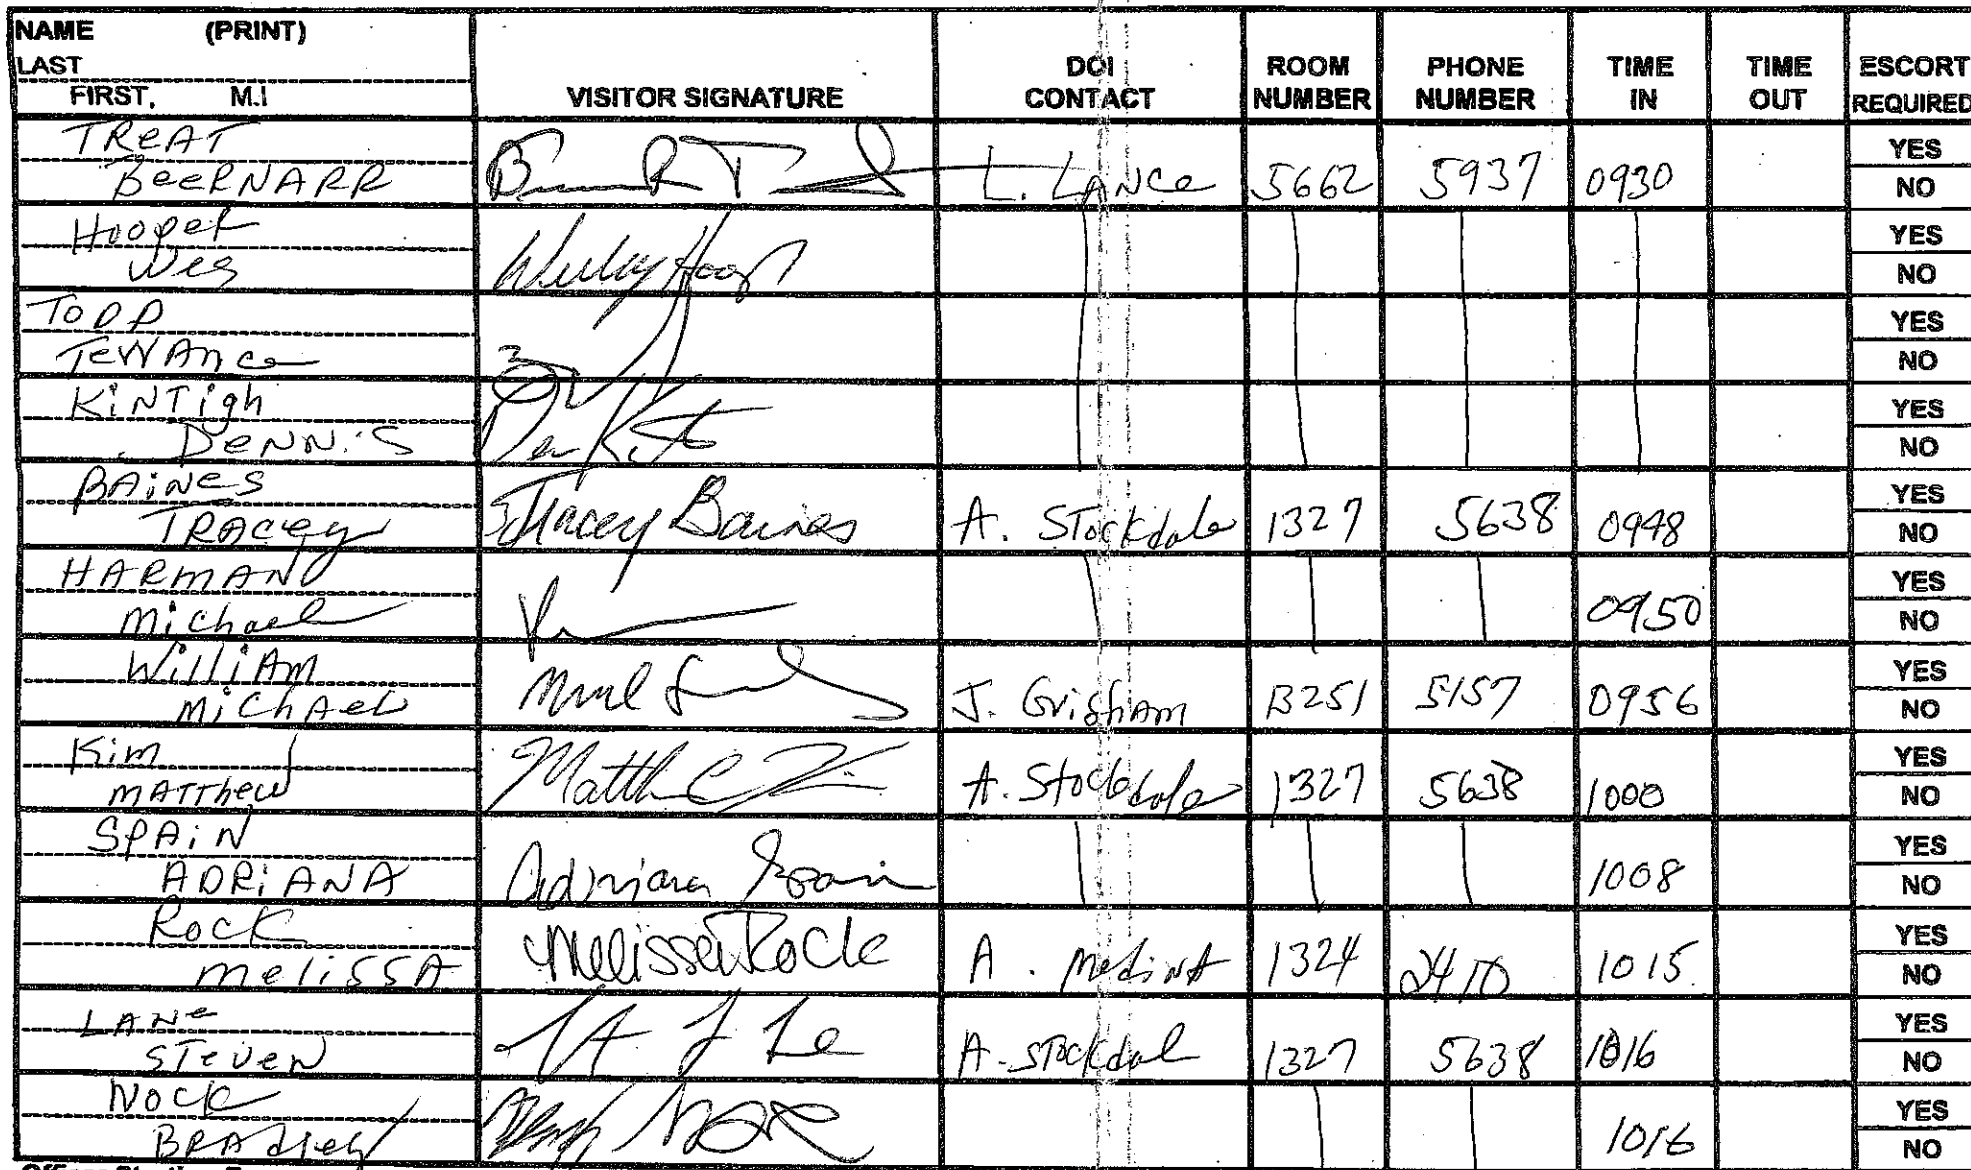 NAME (PRINT)
LAST
FIRST, M.I
VISITOR SIGNATURE
DOI
CONTACT
ROOM
NUMBER
PHONE
NUMBER
TIME
IN
TIME
OUT
ESCORT
REQUIRED
TReAT
BeeRNARR
L. LANCe 5662 5937 0930
YES
NO
Hooper
Wes
Wesley Hoop
YES
NO
TODD
TeWANce
YES
NO
KiNTigh
DeNNiS
YES
NO
BAiNeS
TRACey
Tracey Baines
A. STockdale 1327 5638 0948
YES
NO
HARMAN
Michael
0950
YES
NO
WilliAm
MiChAel
J. Grisham B251 5157 0956
YES
NO
Kim
MATThew
Matth C
A. Stockdale 1327 5638 1000
YES
NO
SPAiN
ADRiANA
Adriana Spain
1008
YES
NO
RocK
meliSSA
Melissa Rock
A. MediNA 1324 2410 1015
YES
NO
LANe
STeveN
A. STockdal 1327 5638 1016
YES
NO
Nock
BRAdley
1016
YES
NO